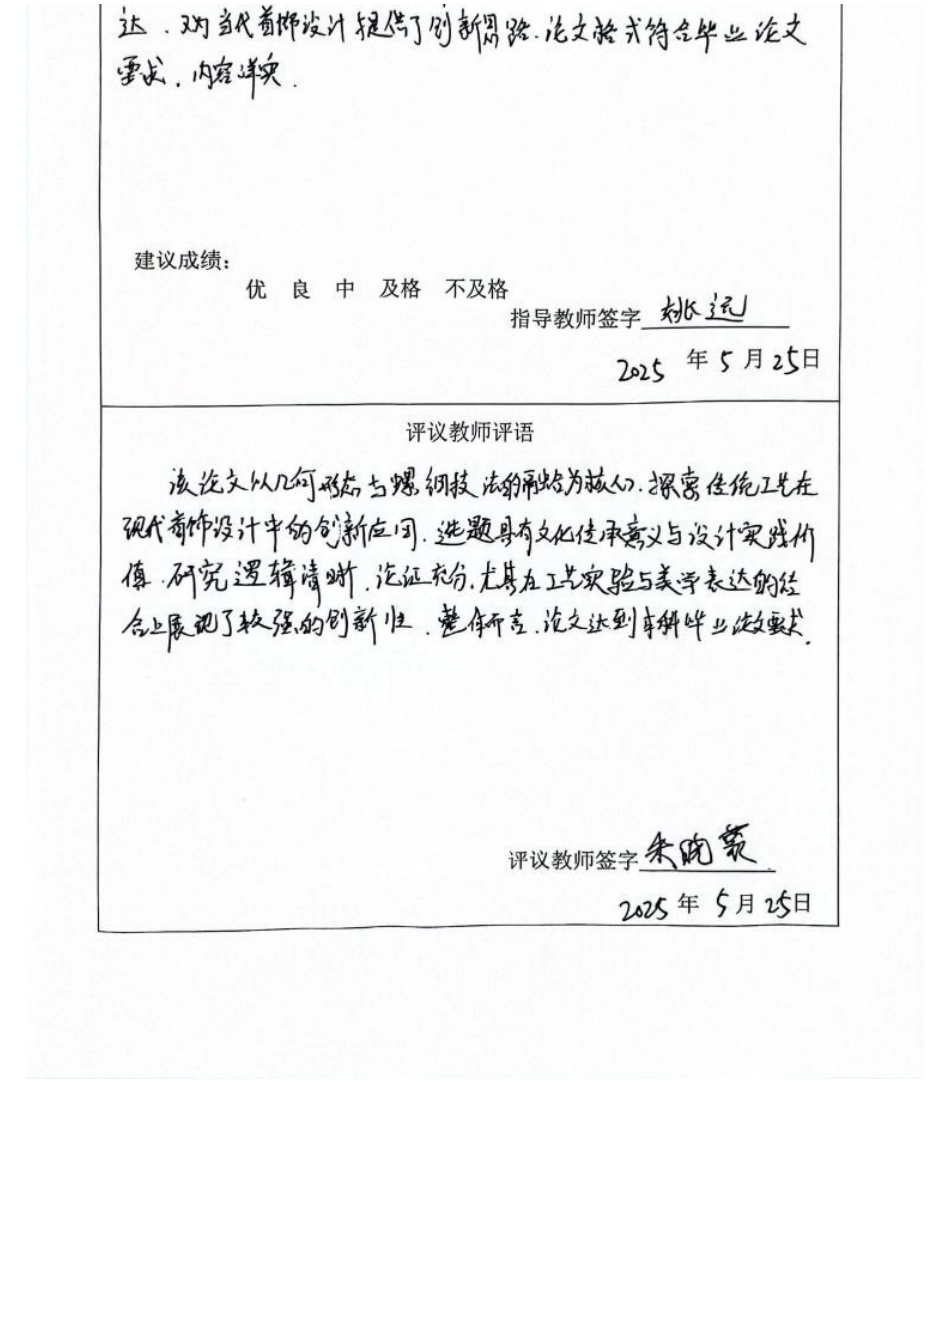 达,对当代首饰设计提供了创新思路.论文格式符合毕业论文
要求,内容详实.
建议成绩:
优 良 中 及格 不及格
指导教师签字 姚远
2025 年 5 月 25日
评议教师评语
该论文从几何形态与螺钿技法的融合为核心.探索传统工艺在
现代首饰设计中的创新应用.选题具有文化传承意义与设计实践价
值.研究逻辑清晰,论证充分.尤其在工艺实验与美学表达的结
合上展现了较强的创新性.整体而言,论文达到本科毕业论文要求.
评议教师签字 朱晓
2025 年 5 月 25日